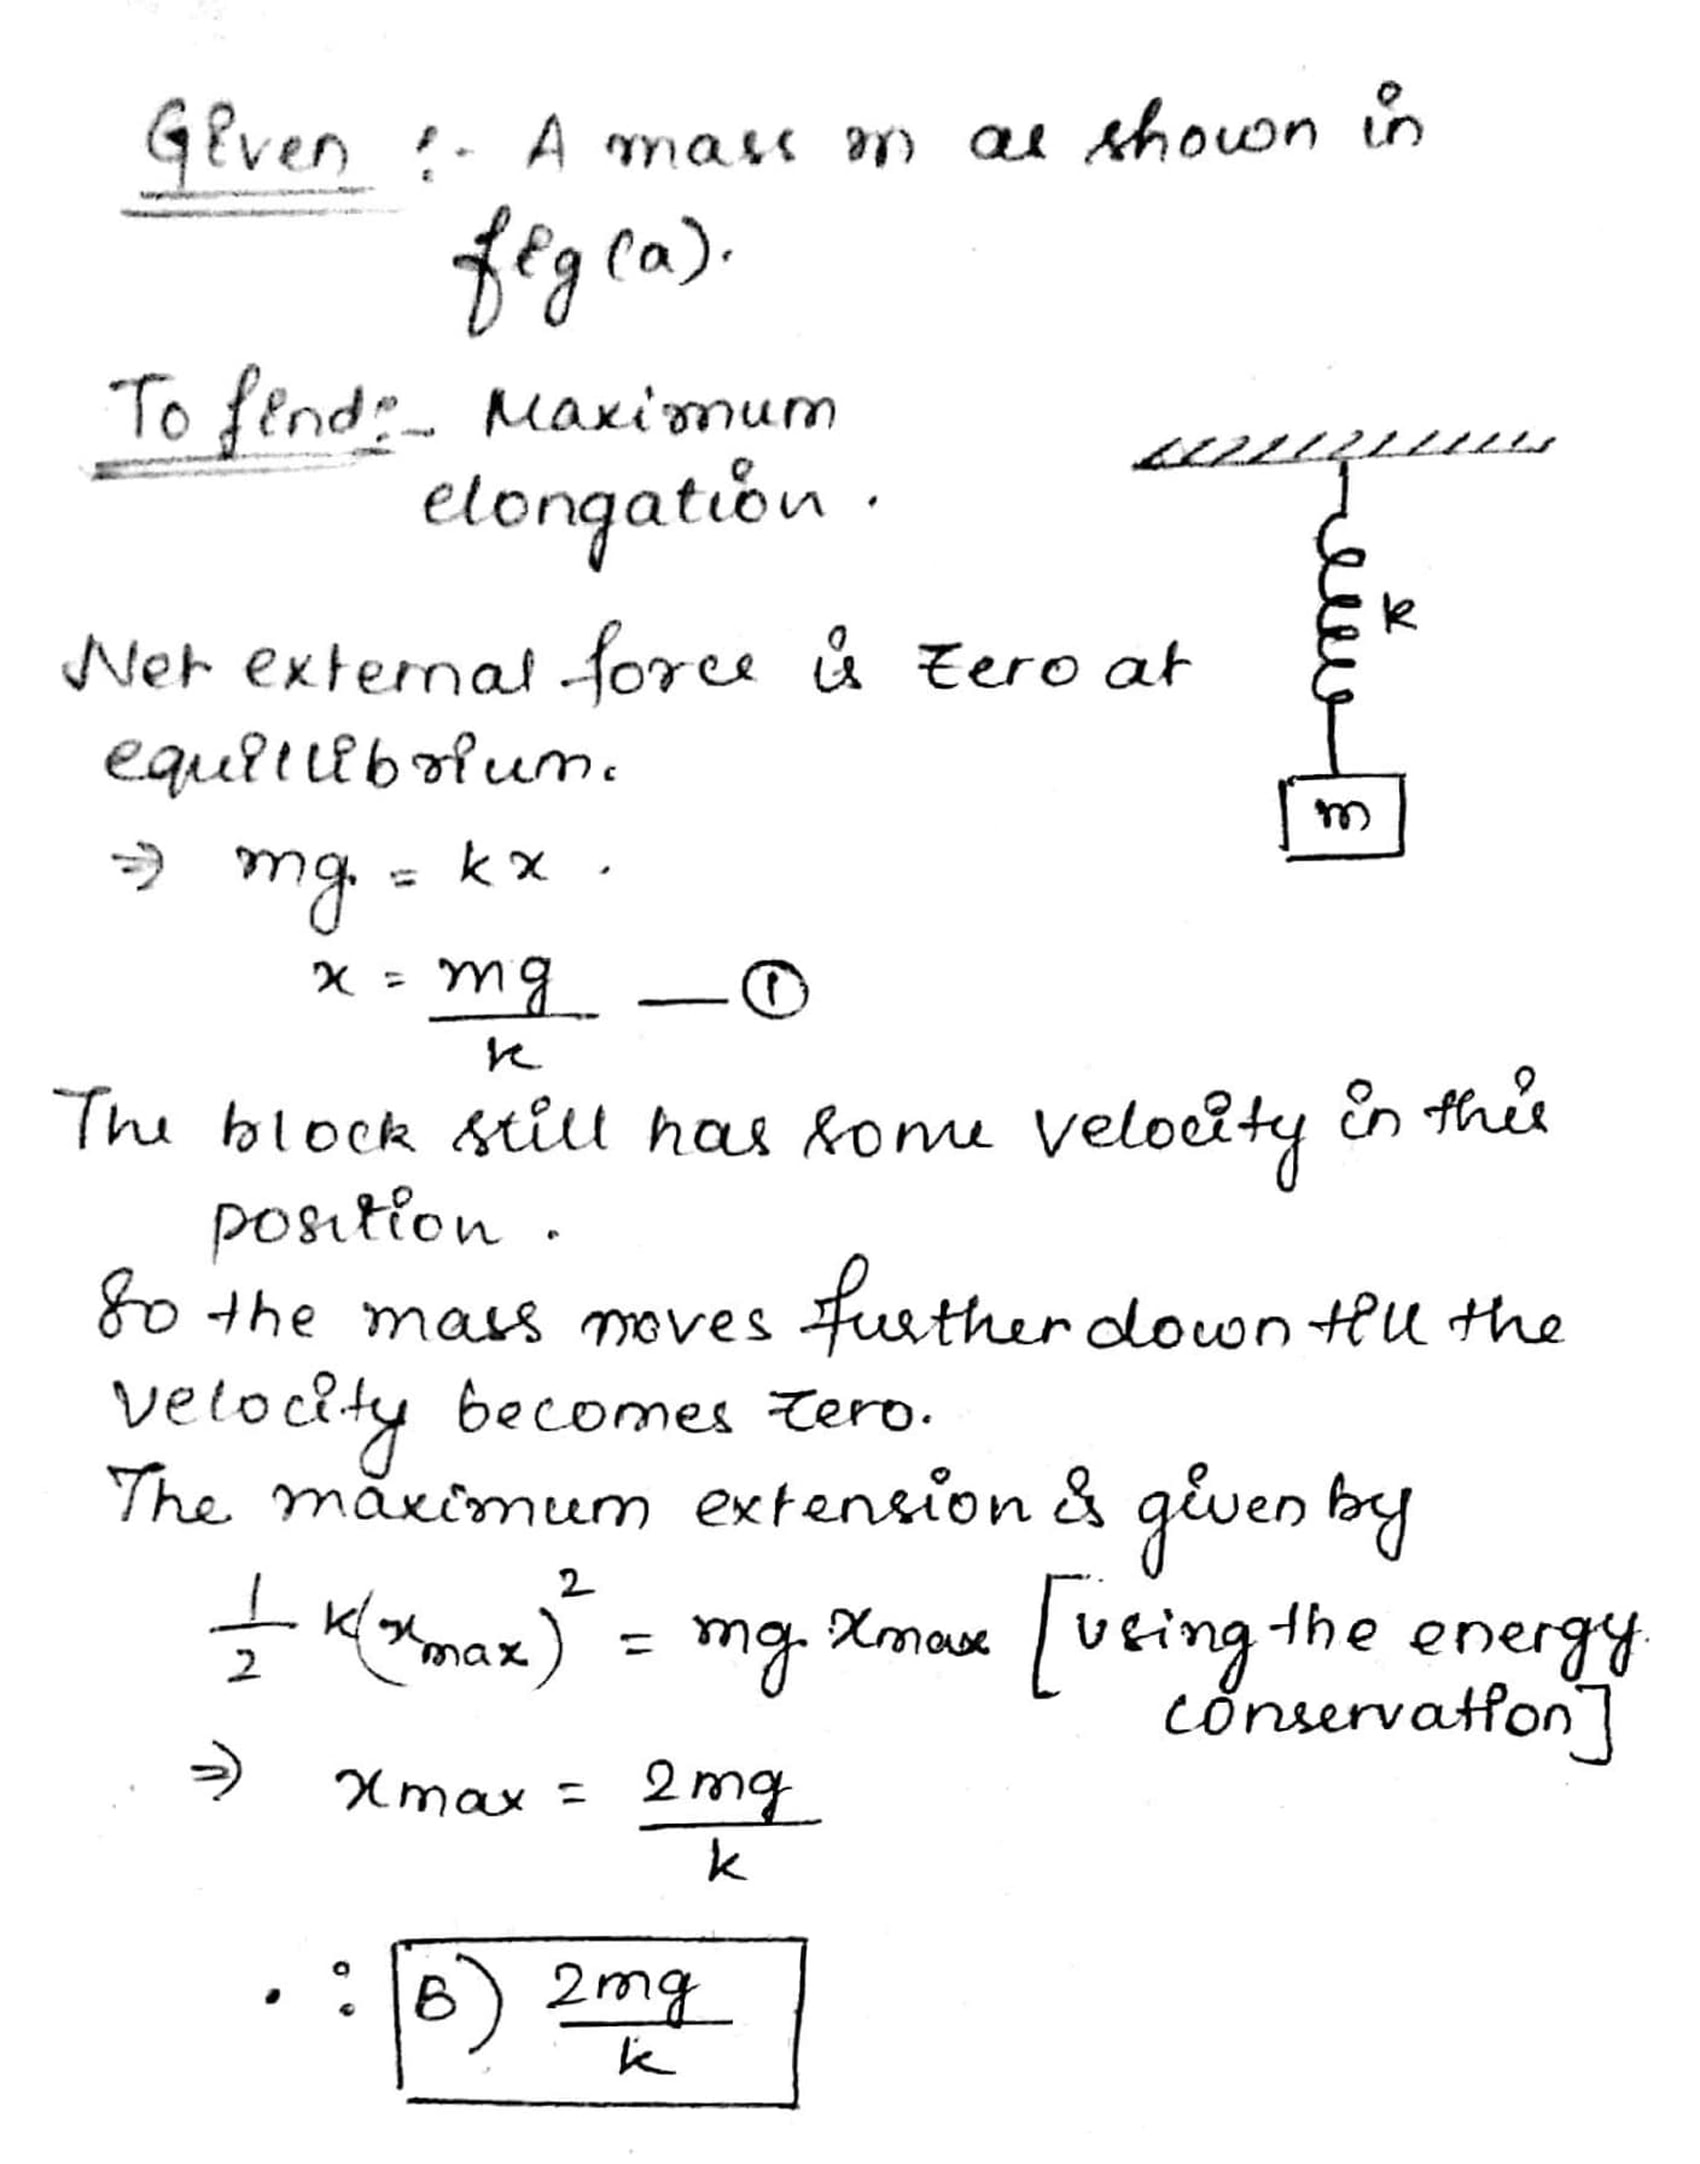 Given :- A mass m as shown in
fig (a).
To find:- Maximum
elongation.
k
m
Net external force is zero at
equillibrium.
⇒ mg = kx.
x = mg/k — ①
The block still has some velocity in this
position.
So the mass moves further down till the
velocity becomes zero.
The maximum extension is given by
1/2 k(xmax)² = mg xmax [using the energy
conservation]
⇒ xmax = 2mg/k
∴ B) 2mg/k